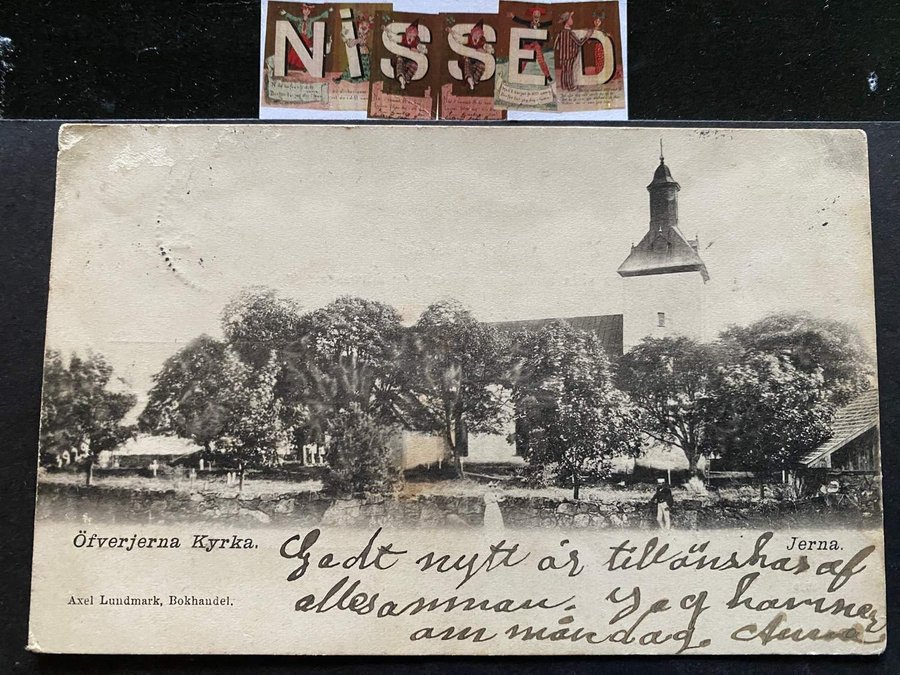 NISSED
Öfverjerna Kyrka.
Jerna.
Godt nytt år tillönskas af
Axel Lundmark, Bokhandel.
allesamman. Jag kommer
om måndag. Anna